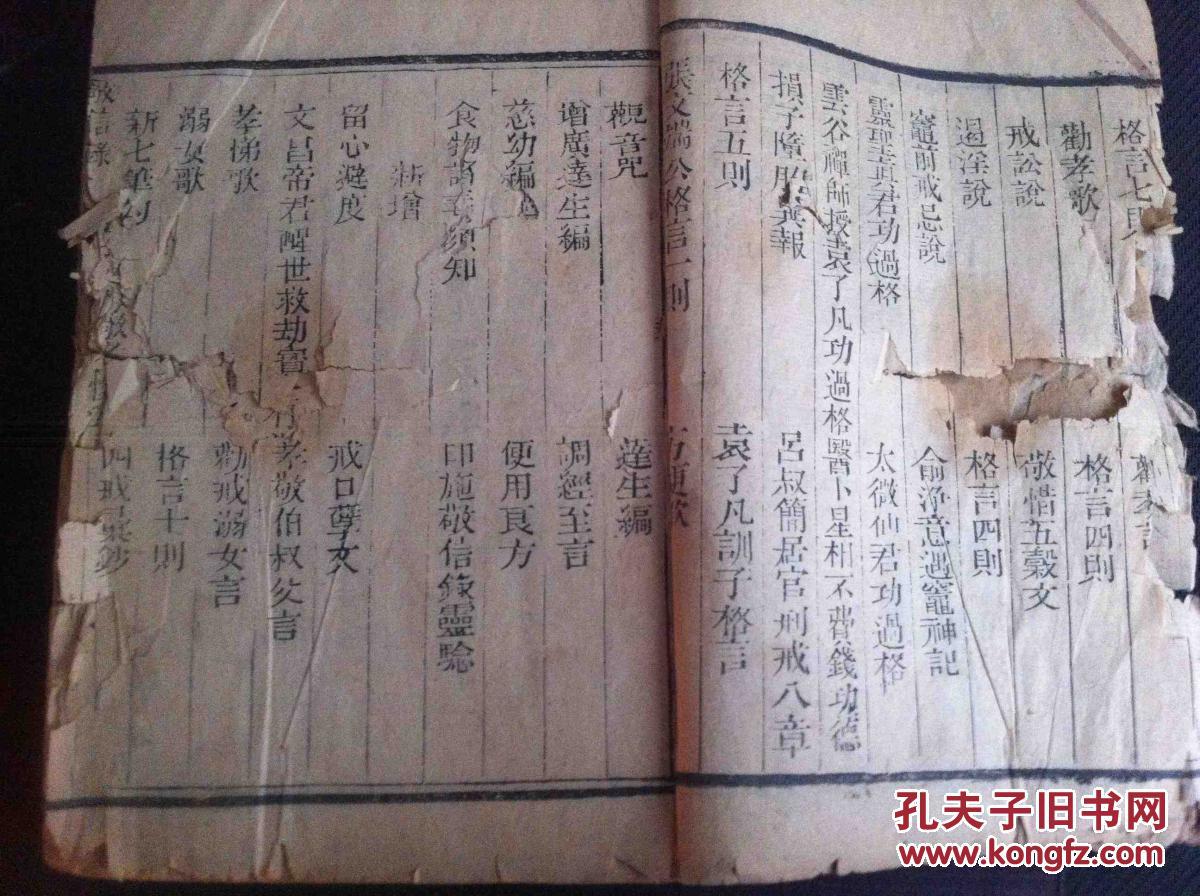 格言七
勸孝歌 格言四則
戒訟說 敬惜五穀文
遏淫說 格言四則
竈前戒忌說 俞淨意遇竈神記
靈聖真君功過格 太微仙君功過格
雲谷禪師授袁了凡功過格 醫卜星相不費錢功德
損子墮胎 報 呂叔簡居官刑戒八章
格言五則 袁了凡訓子格言
張文端公格言一則 方便歌
觀音咒 達生編
增廣達生編 調經至言
慈幼編 便用良方
食物諸 須知 印施敬信錄靈驗
新增
留心避度 戒口孽文
文昌帝君醒世救劫寶 孝敬伯叔父言
孝悌歌 勸戒溺女言
溺女歌 格言十則
新七筆勾 四戒 鈔
敬信錄
孔夫子旧书网
www.kongfz.com